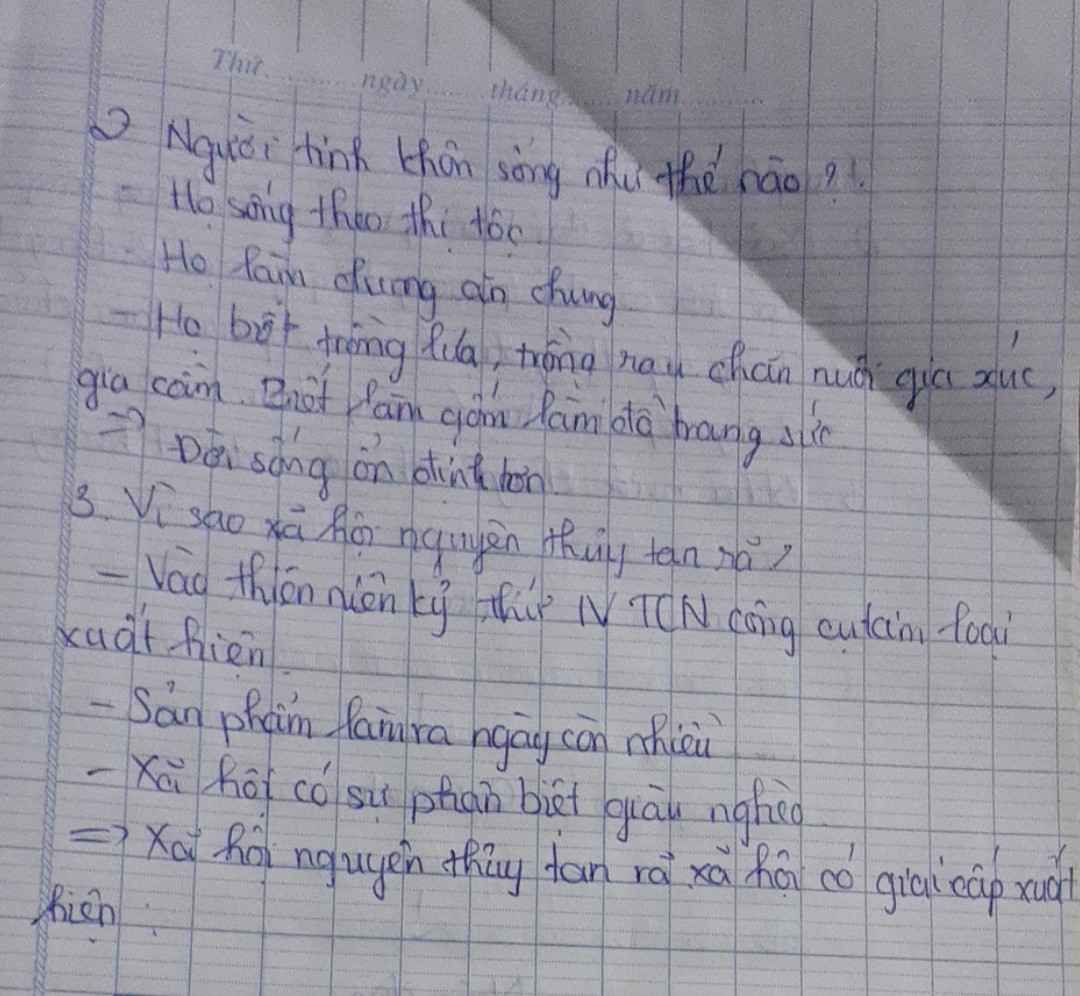 Thứ......... ngày ......... tháng ......... năm .........
2 Người tinh khôn sống như thế nào ?
- Họ sống theo thị tộc
- Họ làm chung ăn chung
- Họ biết trồng lúa, trồng rau chăn nuôi gia xúc,
gia cầm. Biết làm gốm làm đồ trang sức
=> Đời sống ổn định hơn
3. Vì sao xã hội nguyên thủy tan rã ?
- Vào thiên niên kỷ thứ IV TCN công cụ kim loại
xuất hiện
- Sản phẩm làm ra ngày còn nhiều
- Xã hội có sự phân biệt giàu nghèo
=> Xã hội nguyên thủy tan rã xã hội có giai cấp xuất
hiện.